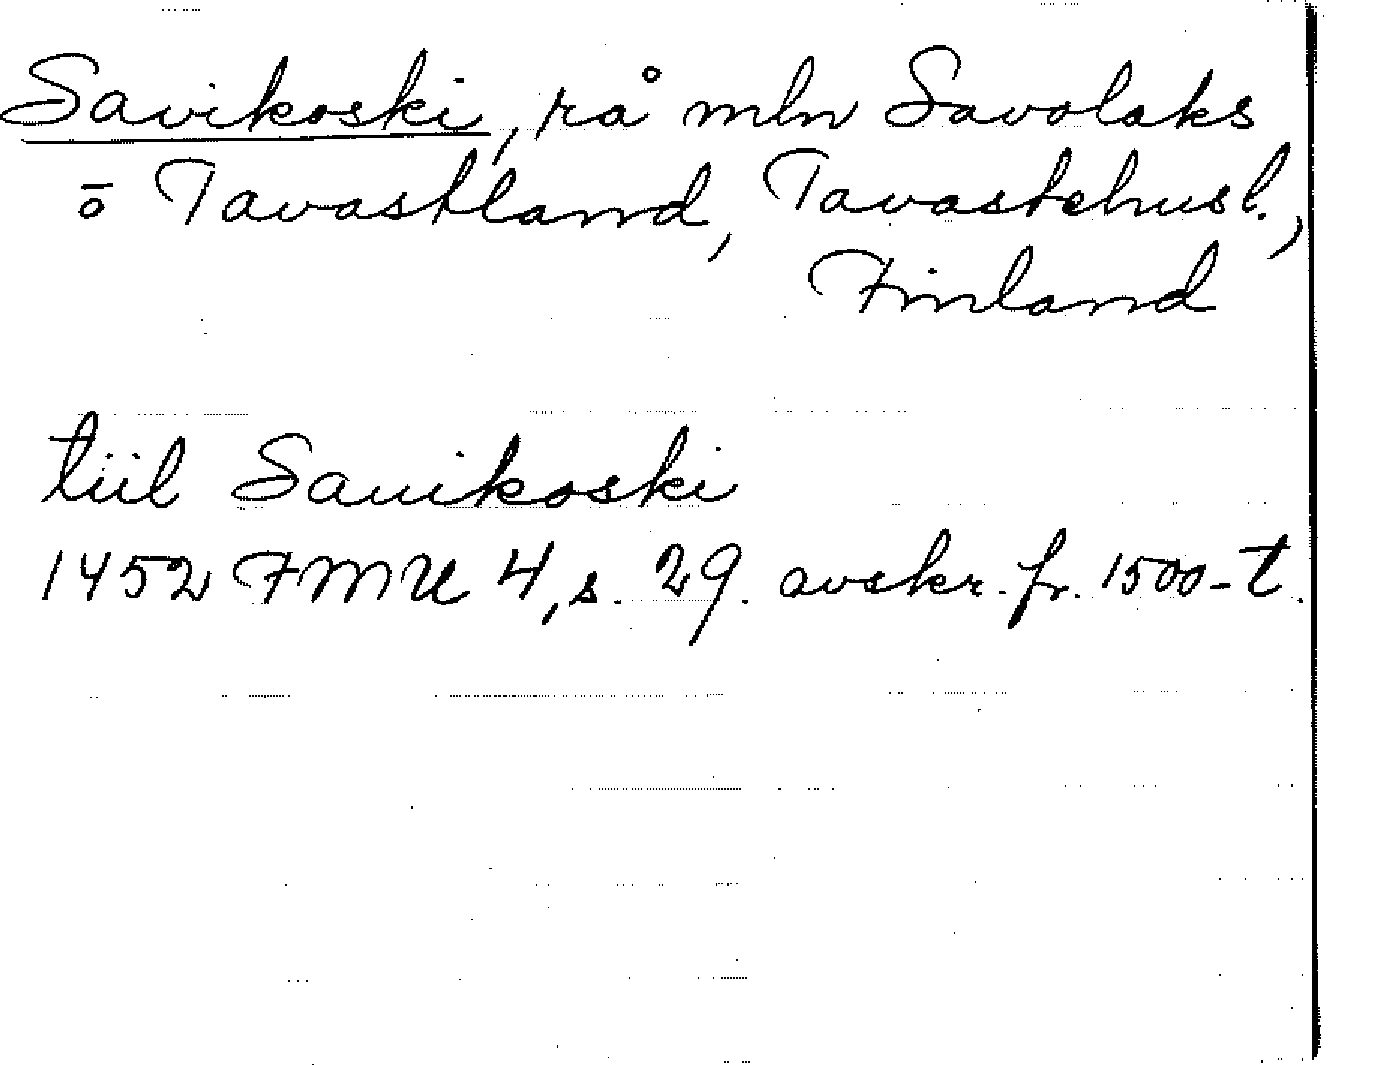 Savikoski, rå mln Savolaks
ō Tavastland, Tavastehusl.,
Finland
tiil Sauikoski
1452 FMU 4, s. 29. avskr. fr. 1500-t.